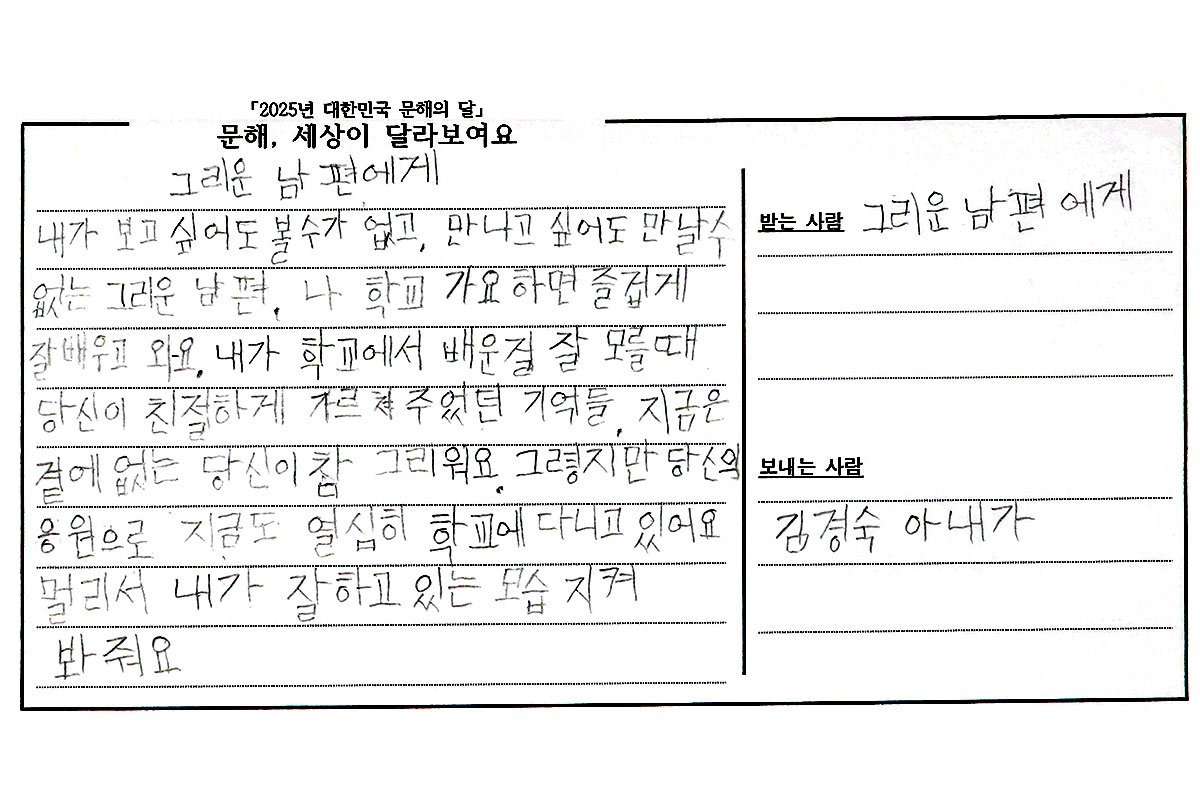 「2025년 대한민국 문해의 달」
문해, 세상이 달라보여요
그리운 남편에게
내가 보고 싶어도 볼수가 없고, 만나고 싶어도 만날수
없는 그리운 남편, 나 학교 가요 하면 즐겁게
잘배우고 와요, 내가 학교에서 배운걸 잘 모를때
당신이 친절하게 가르쳐 주었던 기억들, 지금은
곁에 없는 당신이 참 그리워요, 그렇지만 당신의
응원으로 지금도 열심히 학교에 다니고 있어요
멀리서 내가 잘하고 있는 모습 지켜
봐 줘요
받는 사람 그리운 남편 에게
보내는 사람
김경숙 아내가